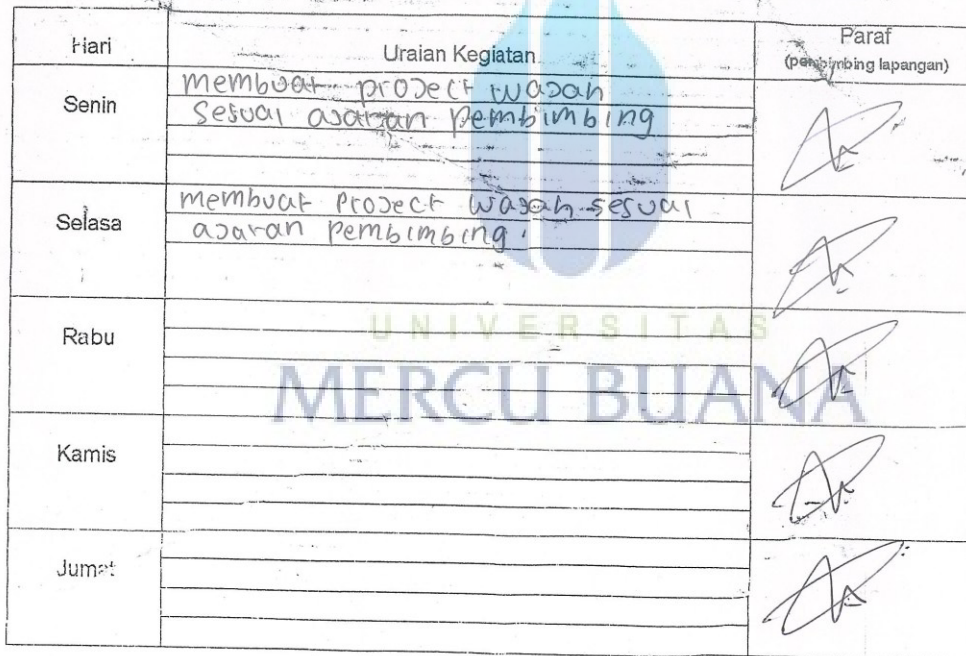 Hari
Uraian Kegiatan
Paraf
(pembimbing lapangan)
Senin
membuat project wajah
sesuai ajaran pembimbing
Selasa
membuat project wajah sesuai
ajaran pembimbing.
Rabu
UNIVERSITAS
MERCU BUANA
Kamis
Jumat